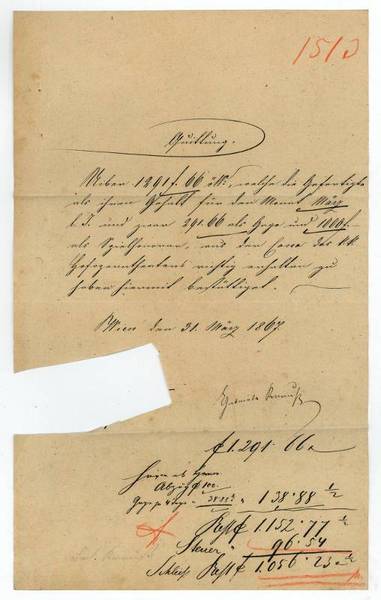 151 J
Quittung.
Ueber 1291 f. 66 öW., welche die Gefertigte
als ihren Gehalt für den Monat März
l. J. und zwar 291.66 als Gage und 1000 f.
als Spielhonorar, aus der Cassa des k.k.
Hofoperntheaters richtig erhalten zu
haben hiermit bestättiget.
Wien den 31. März 1867
Gabriele Krauss
f 1.291. 66
Abzug
138.88 1/2
Rest f 1.152.77 1/2
Steuer 96.54
Rest f 1.056.23 1/2